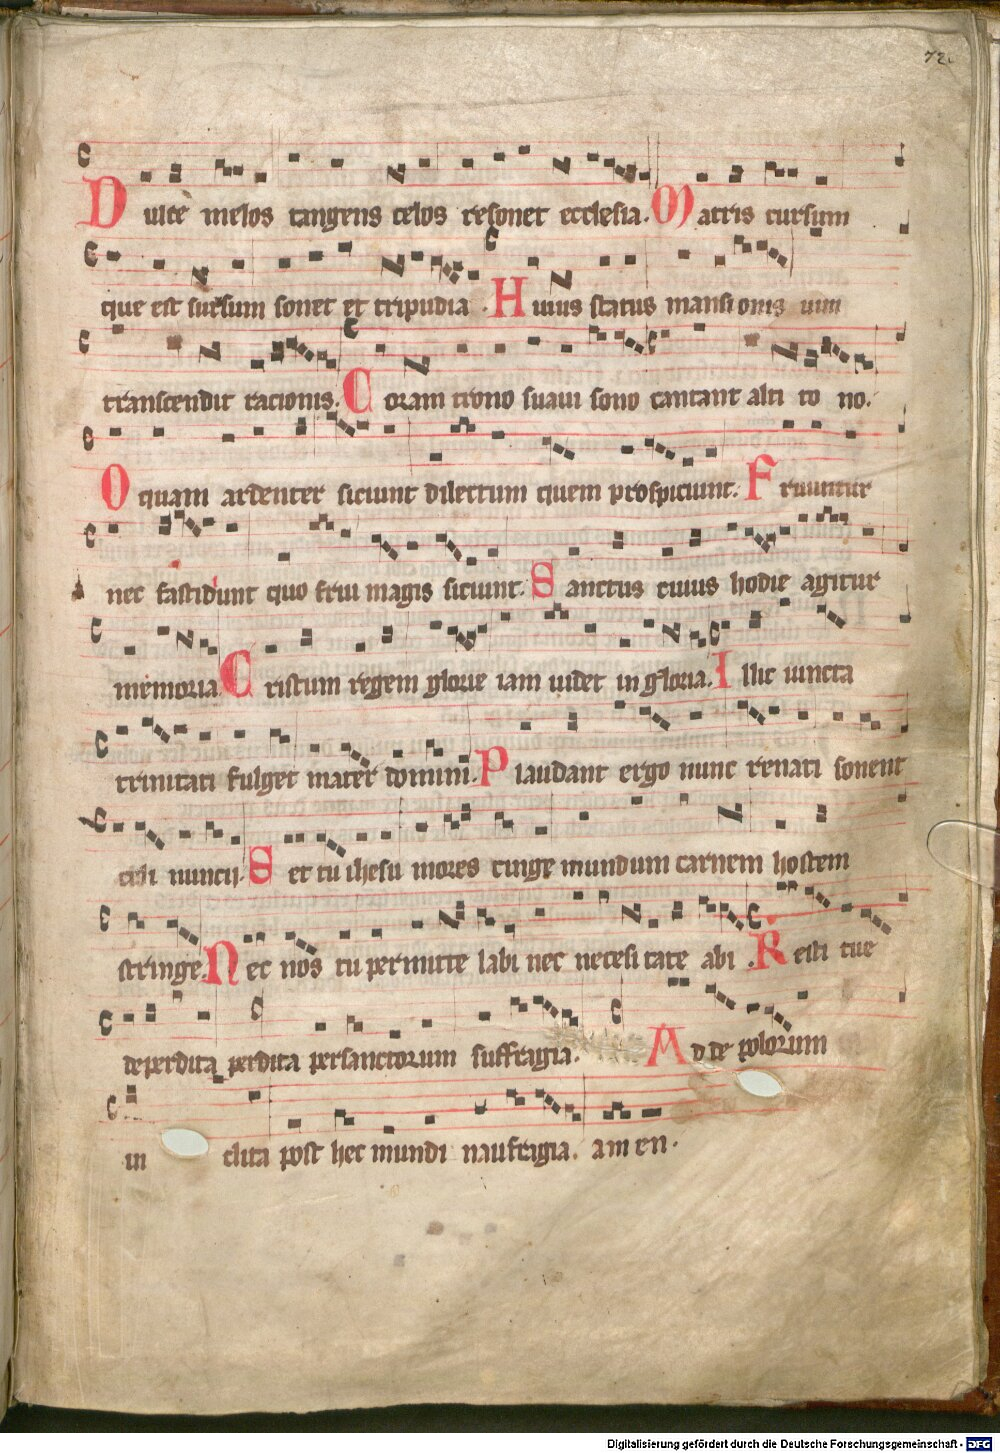 72.
Dulce melos tangens celos resonet ecclesia. Matris cursum
que est sursum sonet et tripudia. Huius status mansionis uim
transcendit racionis. Coram trono suaui sono cantant alti to no.
O quam ardenter siciunt dilectum quem prospiciunt. Fruuntur
nec fastidunt quo frui magis siciunt. Sanctus cuius hodie agitur
memoria Cristum regem glorie iam uidet in gloria. Illic iuncta
trinitati fulget mater domini. Plaudant ergo nunc renati sonent
celi nuncij. Set tu ihesu mores cinge mundum carnem hostem
stringe. Nec nos tu permitte labi nec necesitate abi. Resti tue
deperdita perdita persanctorum suffragia. Ad te polorum
in clita post hec mundi naufragia. amen.
Digitalisierung gefördert durch die Deutsche Forschungsgemeinschaft - DFG